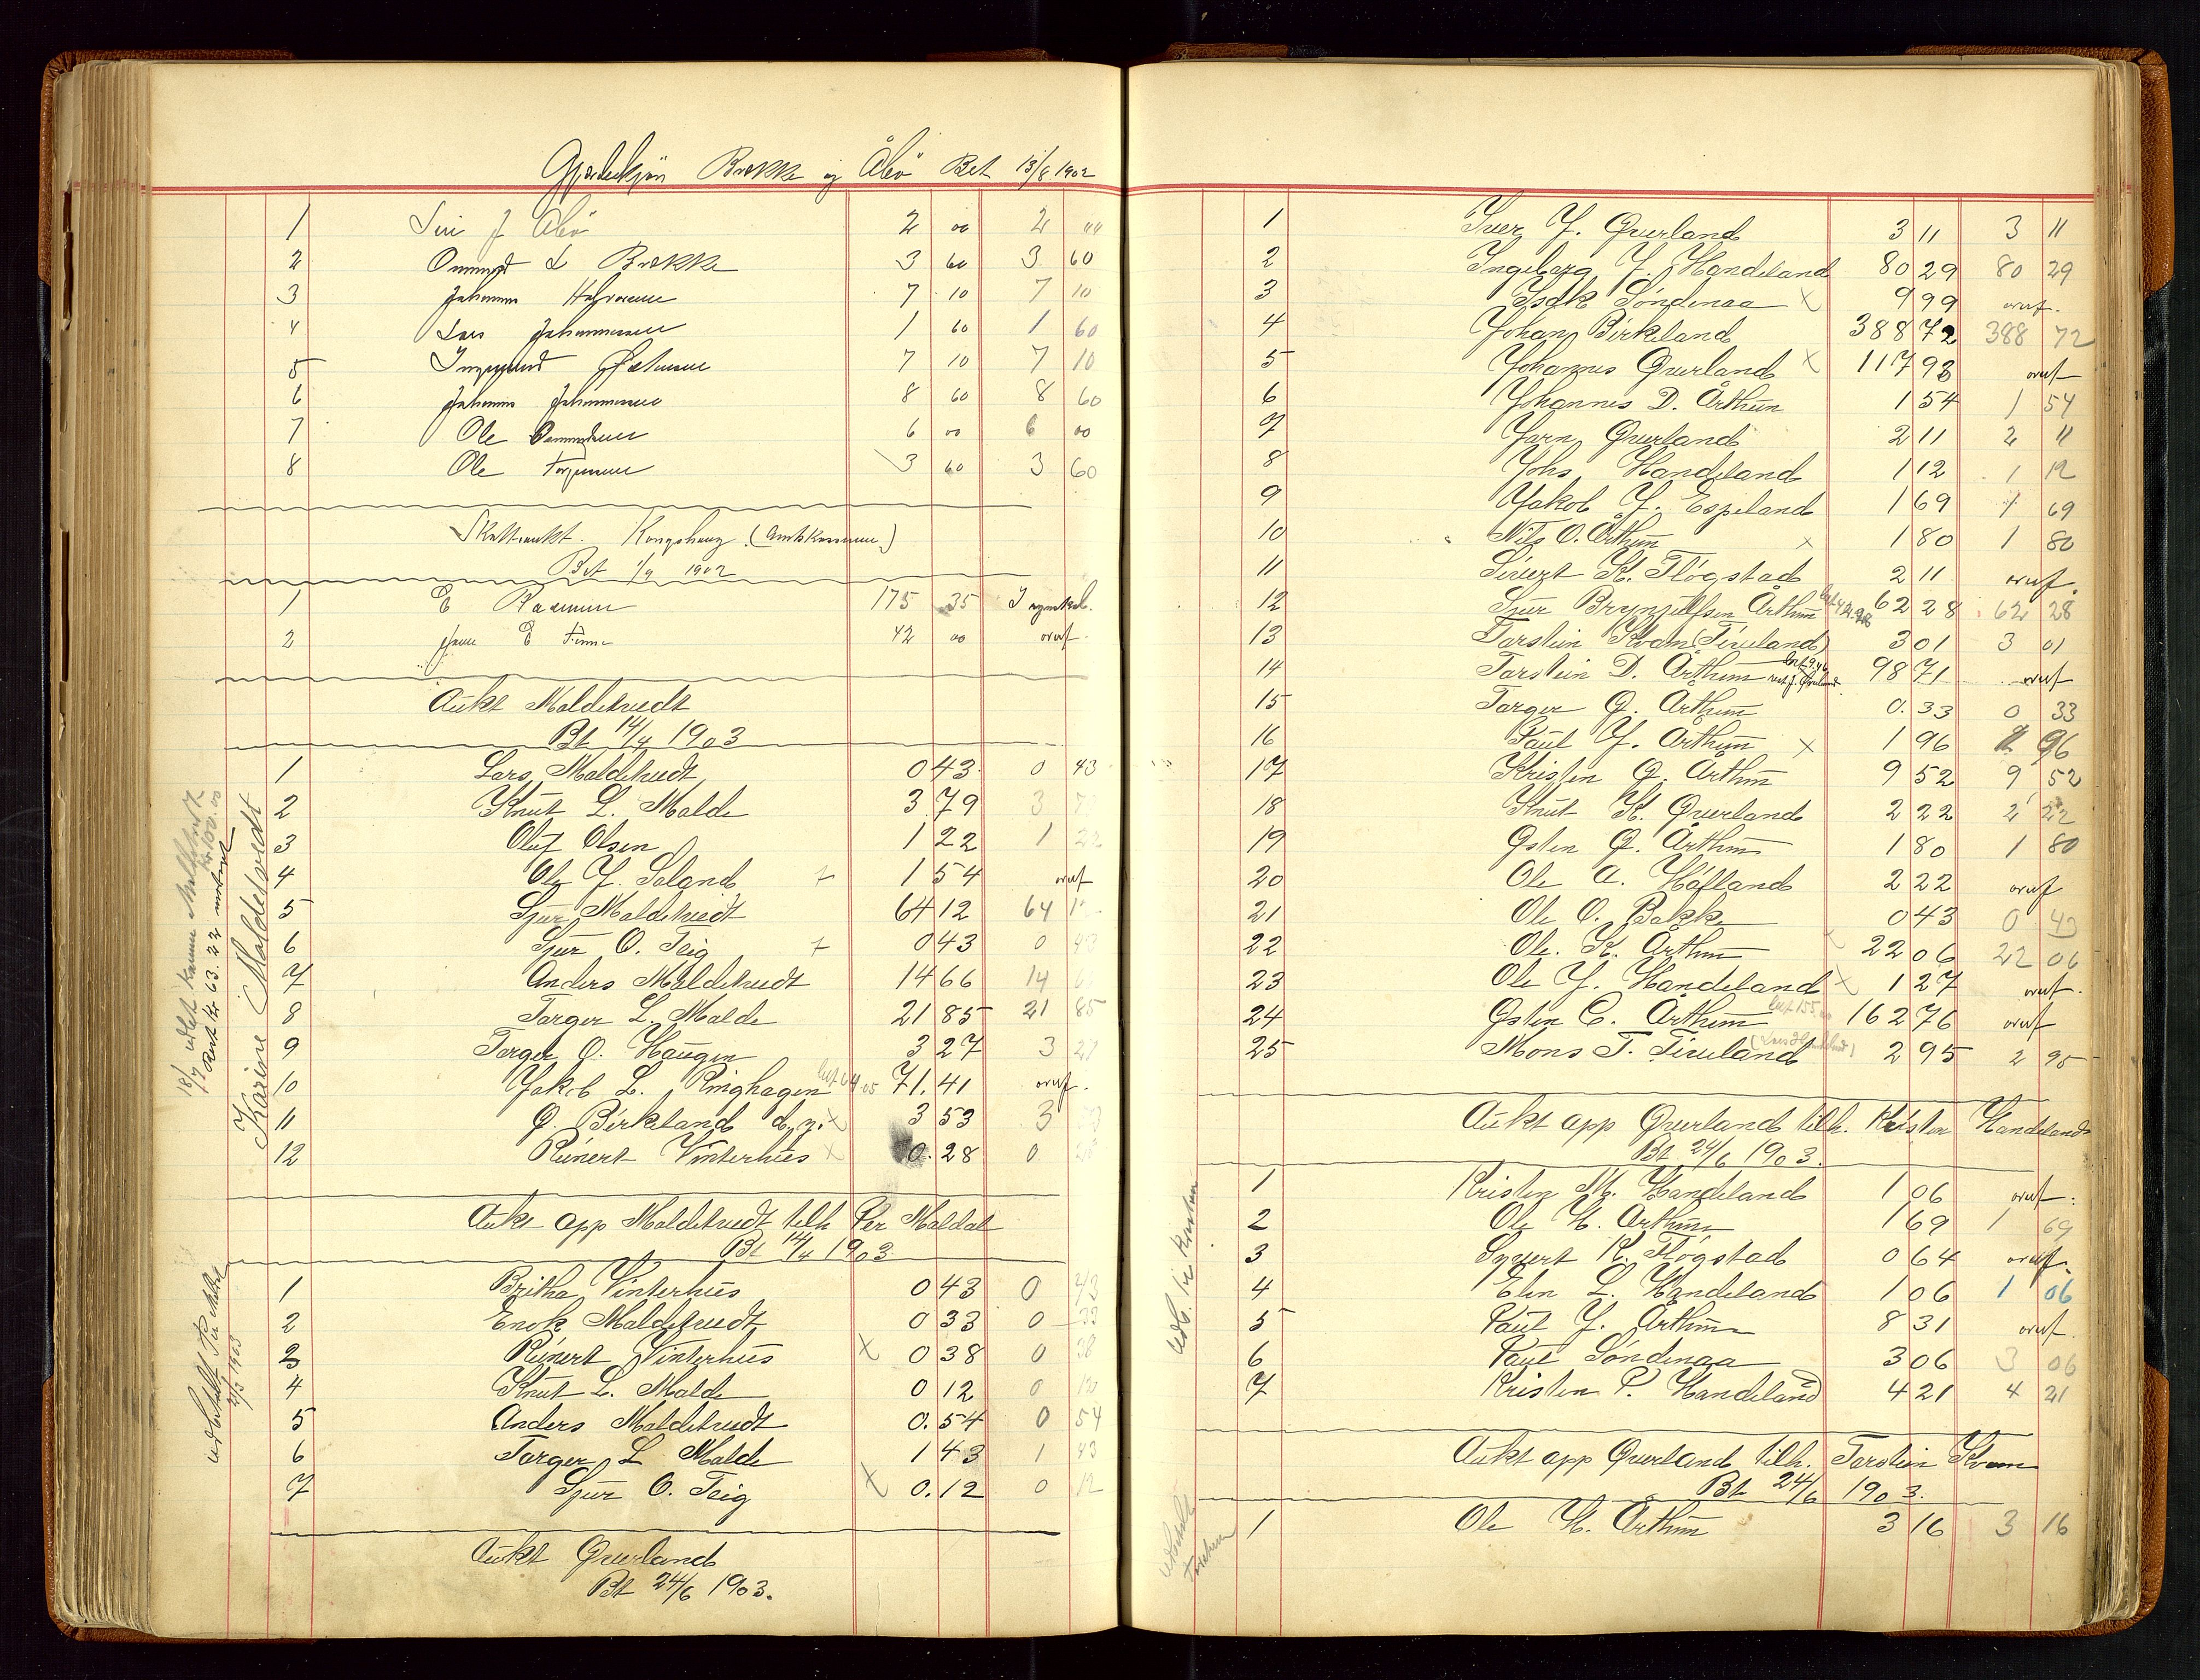 Brekke og Åbø Bet 13/8 1902
1 Siri J Åbø 2 00 2 "
2 Ommund L Brekke 3 60 3 60
3 Johannes 7 10 7 10
4 Lars Johannessen 1 60 1 60
5 7 10 7 10
6 Johannes Johannessen 8 60 8 60
7 Ole 6 00 6 00
8 Ole 3 60 3 60
Kongshaug (Amtskassereren)
Bet 1/9 1902
1 E Rasmussen 175 35
2 E 42 00 overf.
Aukt Maldetvedt
Bt 14/4 1903
1 Lars Maldetvedt 0 43 0 43
2 Knut L. Malde 3.79 3
3 Oluf Olsen 1 22 1 22
4 Ole J. Soland + 1 54 overf
5 Sjur Maldetvedt 64 12 64 1
6 Sjur O. Teig + 0 43 0 43
7 Anders Maldetvedt 14 66 14 6
8 Torger L. Malde 21 85 21 85
9 Torger O. Haugen 3 27 3 27
10 Jakob L. Ringhagen 71.41 overf.
11 G. Birkeland d.y. x 3 53 3
12 Reinert Vinterhus x 0.28 0 28
Karine Maldetvedt
Aukt app Maldetvedt tilh Per Maldal
Bt 14/4 1903
1 Britha Vinterhus 0 43 0 43
2 Enok Maldetvedt 0 33 0 33
3 Reinert Vinterhus x 0 38 0 38
4 Knut L. Malde 0 12 0 12
5 Anders Maldetvedt 0.54 0 54
6 Torger L Malde 1 43 1 43
7 Sjur O. Teig x 0.12 0 12
Aukt Qverland
Bt 24/6 1903.
1 Iver J. Qverland 3 11 3 11
2 Ingeborg J. Handeland 80 29 80 29
3 Isak Søndenaa x 9 99 overf.
4 Johan Birkeland 388 72 388 72
5 Johannes Qverland x 117 93 overf
6 Johannes D. Årthun 1 54 1 54
7 Jørn Qverland 2 11 2 11
8 Johs. Handeland 1 12 1 12
9 Jakob J. Espeland 1 69 1 69
10 Nils O. Årthun x 1 80 1 80
11 Sivert K. Fløgstad 2 11 overf.
12 Sjur Brynjulfsen Årthun 62 28 62 28
13 Torstein Kvam (Tireland) 3 01 3 01
14 Torstein D. Årthun 98 71 overf
15 Torger G. Årthun 0.33 0 33
16 Paul J. Årthun x 1 96 1 96
17 Kristen G. Årthun 9 52 9 52
18 Knut K. Qverland 2 22 2 22
19 Østen G. Årthun 1 80 1 80
20 Ole A. Høfland 2 22 overf
21 Ole O. Bakke 0 43 0 43
22 Ole K. Årthun 22 06 22 06
23 Ole J. Handeland x 1 27 overf.
24 Østen C. Årthun 162 76 overf
25 Mons T. Tireland 2 95 2 95
Aukt app Qverland tilh. Kristen Handeland
Bt 24/6 1903.
1 Kristen M. Handeland 1 06 overf.
2 Ole K. Årthun 1 69 1 69
3 Syvert K. Fløgstad 0 64 overf.
4 Elen L. Handeland 1 06 1 06
5 Paul J. Årthun 8 31 overf.
6 Paul Søndenaa 3 06 3 06
7 Kristen P. Handeland 4 21 4 21
Aukt app Qverland tilh. Torstein Kvam
Bt 24/6 1903.
1 Ole K. Årthun 3 16 3 16